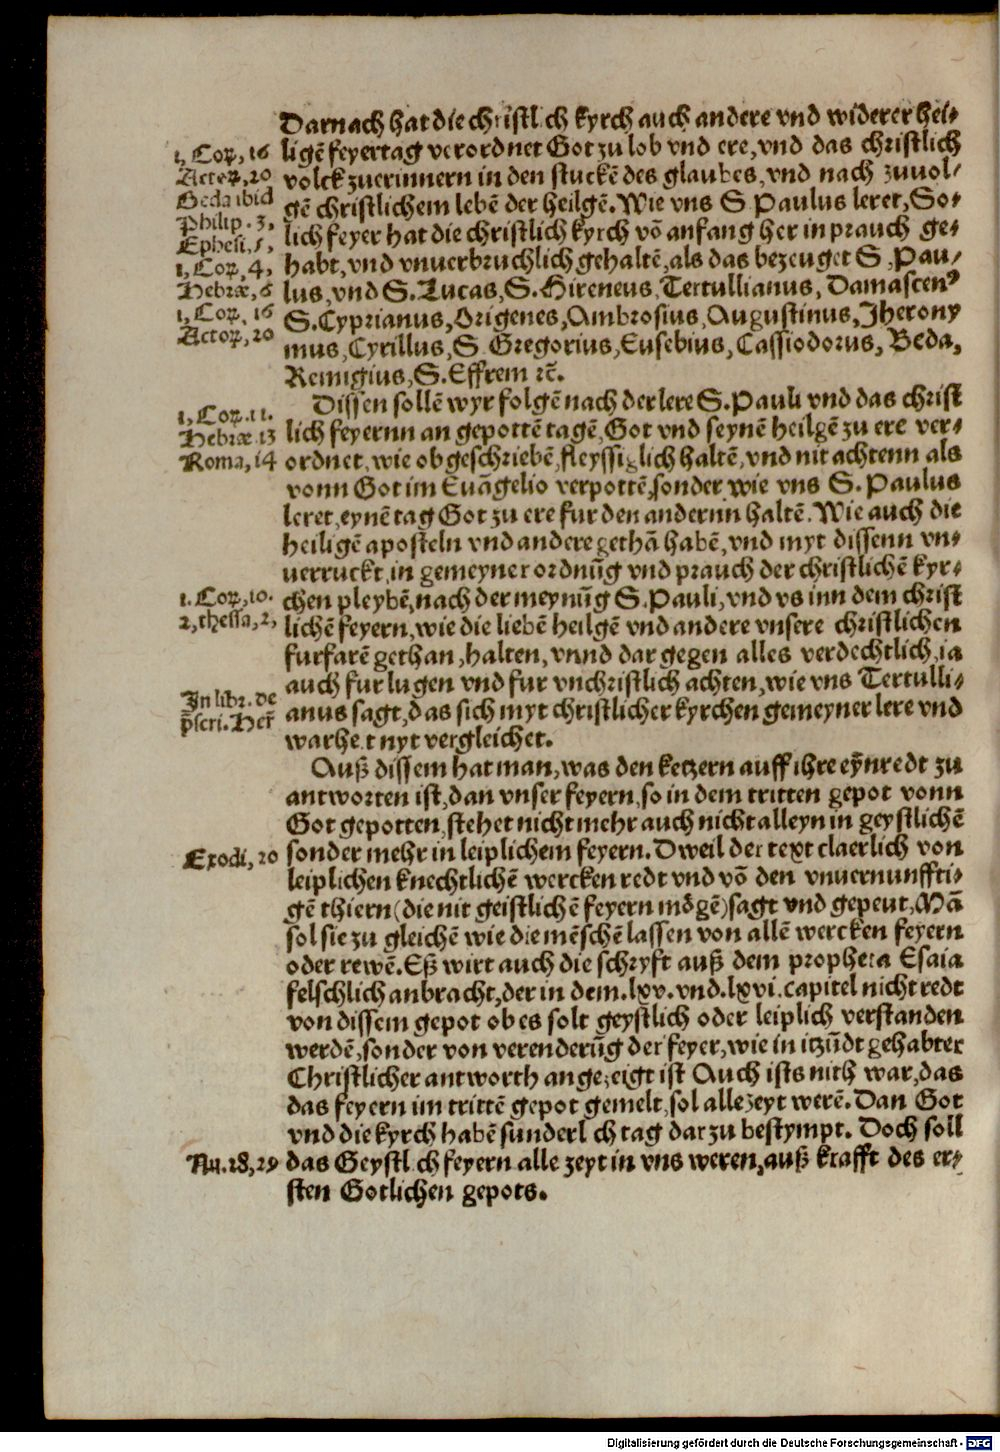 Darnach hat die christlich kyrch auch andere vnd widerer hei⸗
1, Coꝝ, 16
ligē feyertag verordnet Got zu lob vnd ere, vnd das christlich
Actoꝝ, 20
volck zuerinnern in den stuckē des glaubes, vnd nach zuuol⸗
Beda ibid
gē christlichem lebē der heilgē. Wie vns S Paulus leret, So⸗
Philip. 3,
lich feyer hat die christlich kyrch vō anfang her in prauch ge⸗
Ephesi, 5,
habt, vnd vnuerbruchlich gehaltē, als das bezeuget S, Pau⸗
1, Coꝝ, 4,
lus, vnd S. Lucas, S. Hireneus, Tertullianus, Damascenꝰ
Hebræ, 6
S. Cyprianus, Origenes, Ambrosius, Augustinus, Jherony
1, Coꝝ, 16
mus, Cyrillus, S Gregorius, Eusebius, Cassiodorus, Beda,
Actoꝝ, 20
Remigius, S. Effrem ꝛc̄.
Dissen sollē wyr folgē nach der lere S. Pauli vnd das christ
1, Coꝝ. 11.
lich feyernn an gepottē tagē, Got vnd seynē heilgē zu ere ver⸗
Hebræ 13
ordnet, wie obgeschriebē, fleyssiglich haltē, vnd nit achtenn als
Roma, 14
vonn Got im Euāgelio verpottē, sonder wie vns S. Paulus
leret, eynē tag Got zu ere fur den andernn haltē. Wie auch die
heiligē aposteln vnd andere gethā habē, vnd myt dissenn vn⸗
uerruckt, in gemeyner ordnūg vnd prauch der christlichē kyr⸗
1. Coꝝ, 10.
chen pleybē, nach der meynūg S. Pauli, vnd vs inn dem christ
2, thessa, 2,
lichē feyern, wie die liebē heilgē vnd andere vnsere christlichen
furfarē gethan, halten, vnnd dar gegen alles verdechtlich, ia
auch fur lugen vnd fur vnchristlich achten, wie vns Tertulli⸗
In libr. de
anus sagt, das sich myt christlicher kyrchen gemeyner lere vnd
p̄scri. Her̄
warheit nyt vergleichet.
Auß dissem hat man, was den ketzern auff ihre eȳnredt zu
antworten ist, dan vnser feyern, so in dem tritten gepot vonn
Got gepotten, stehet nicht mehr auch nicht alleyn in geystlichē
Exodi, 20
sonder mehr in leiplichem feyern. Dweil der text claerlich von
leiplichen knechtlichē wercken redt vnd vō den vnuernunffti⸗
gē thiern (die nit geistlichē feyern mögē) sagt vnd gepeut, Mā
sol sie zu gleichē wie die mēschē lassen von allē wercken feyern
oder rewē. Eß wirt auch die schryft auß dem propheta Esaia
felschlich anbracht, der in dem. lxv. vnd. lxvi. capitel nicht redt
von dissem gepot ob es solt geystlich oder leiplich verstanden
werdē, sonder von verenderūg der feyer, wie in itzūdt gehabter
Christlicher antworth angezeigt ist Auch ists nith war, das
das feyern im trittē gepot gemelt, sol alle zeyt werē. Dan Got
vnd die kyrch habē sunderlich tag dar zu bestympt. Doch soll
Nu. 28, 29
das Geystlich feyern alle zeyt in vns weren, auß krafft des er⸗
sten Gotlichen gepots.
Digitalisierung gefördert durch die Deutsche Forschungsgemeinschaft - DFG